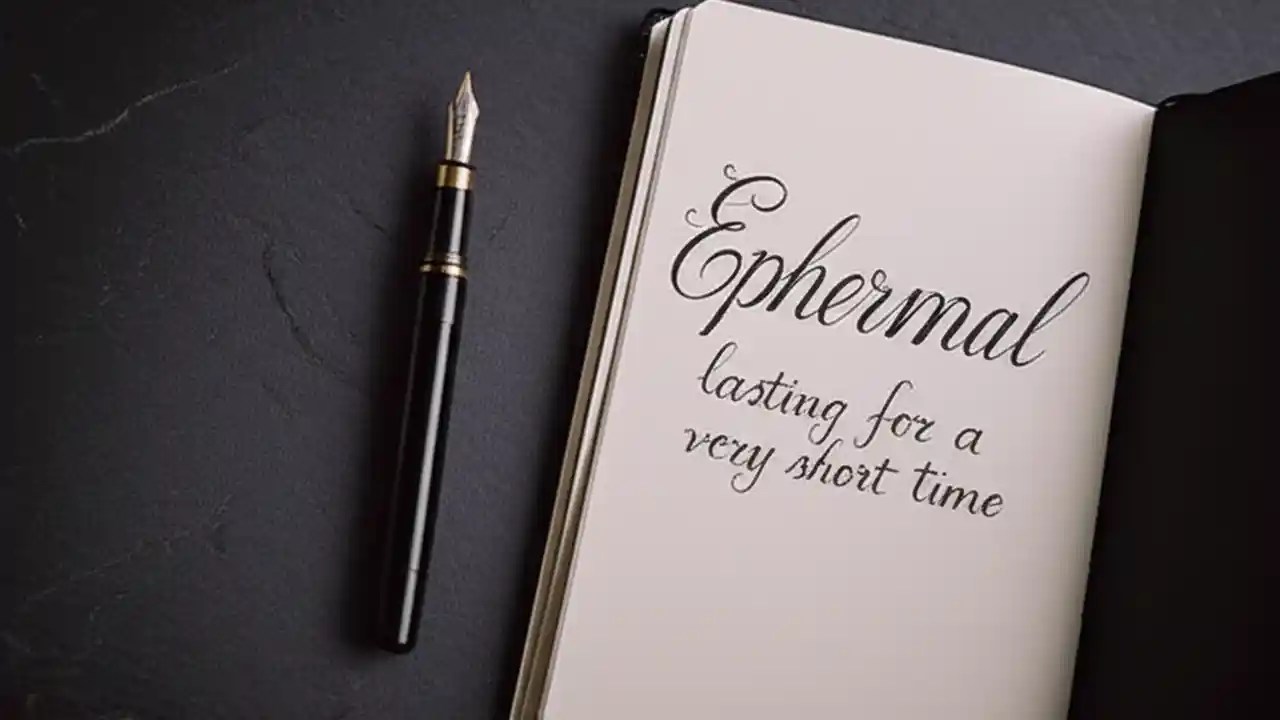 Ephermal
lasting for a
very short time